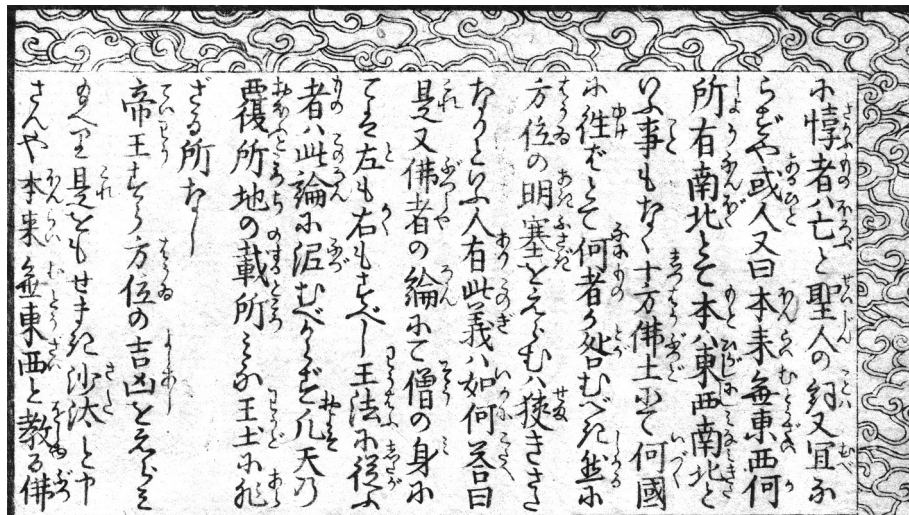 に惇者ハ亡と聖人の詞又宜ふ
らずや或人又曰本来無東西何
所有南北とて本ハ東西南北と
いふ事もなく十方佛土にて何國
に往ばとて何者か咎むべき然に
方位の明塞とえらむハ狭きさた
なりといふ人有此義ハ如何答曰
是又佛者の論にて僧の身に
てハ左も右もすべし王法に従ふ
者ハ此論に泥むべからず凡天乃
覆所地の載所みな王土に非
ざる所なし
帝王すら方位の吉凶をえらみ
給へり是をもせまき沙汰とや
さんや本来無東西と教る佛